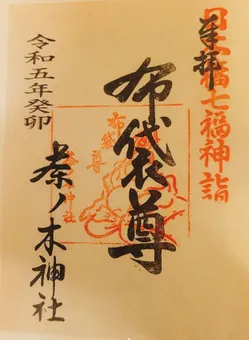 日本橋七福神詣
奉拝
布袋尊
布袋尊
令和五年癸卯
茶ノ木神社